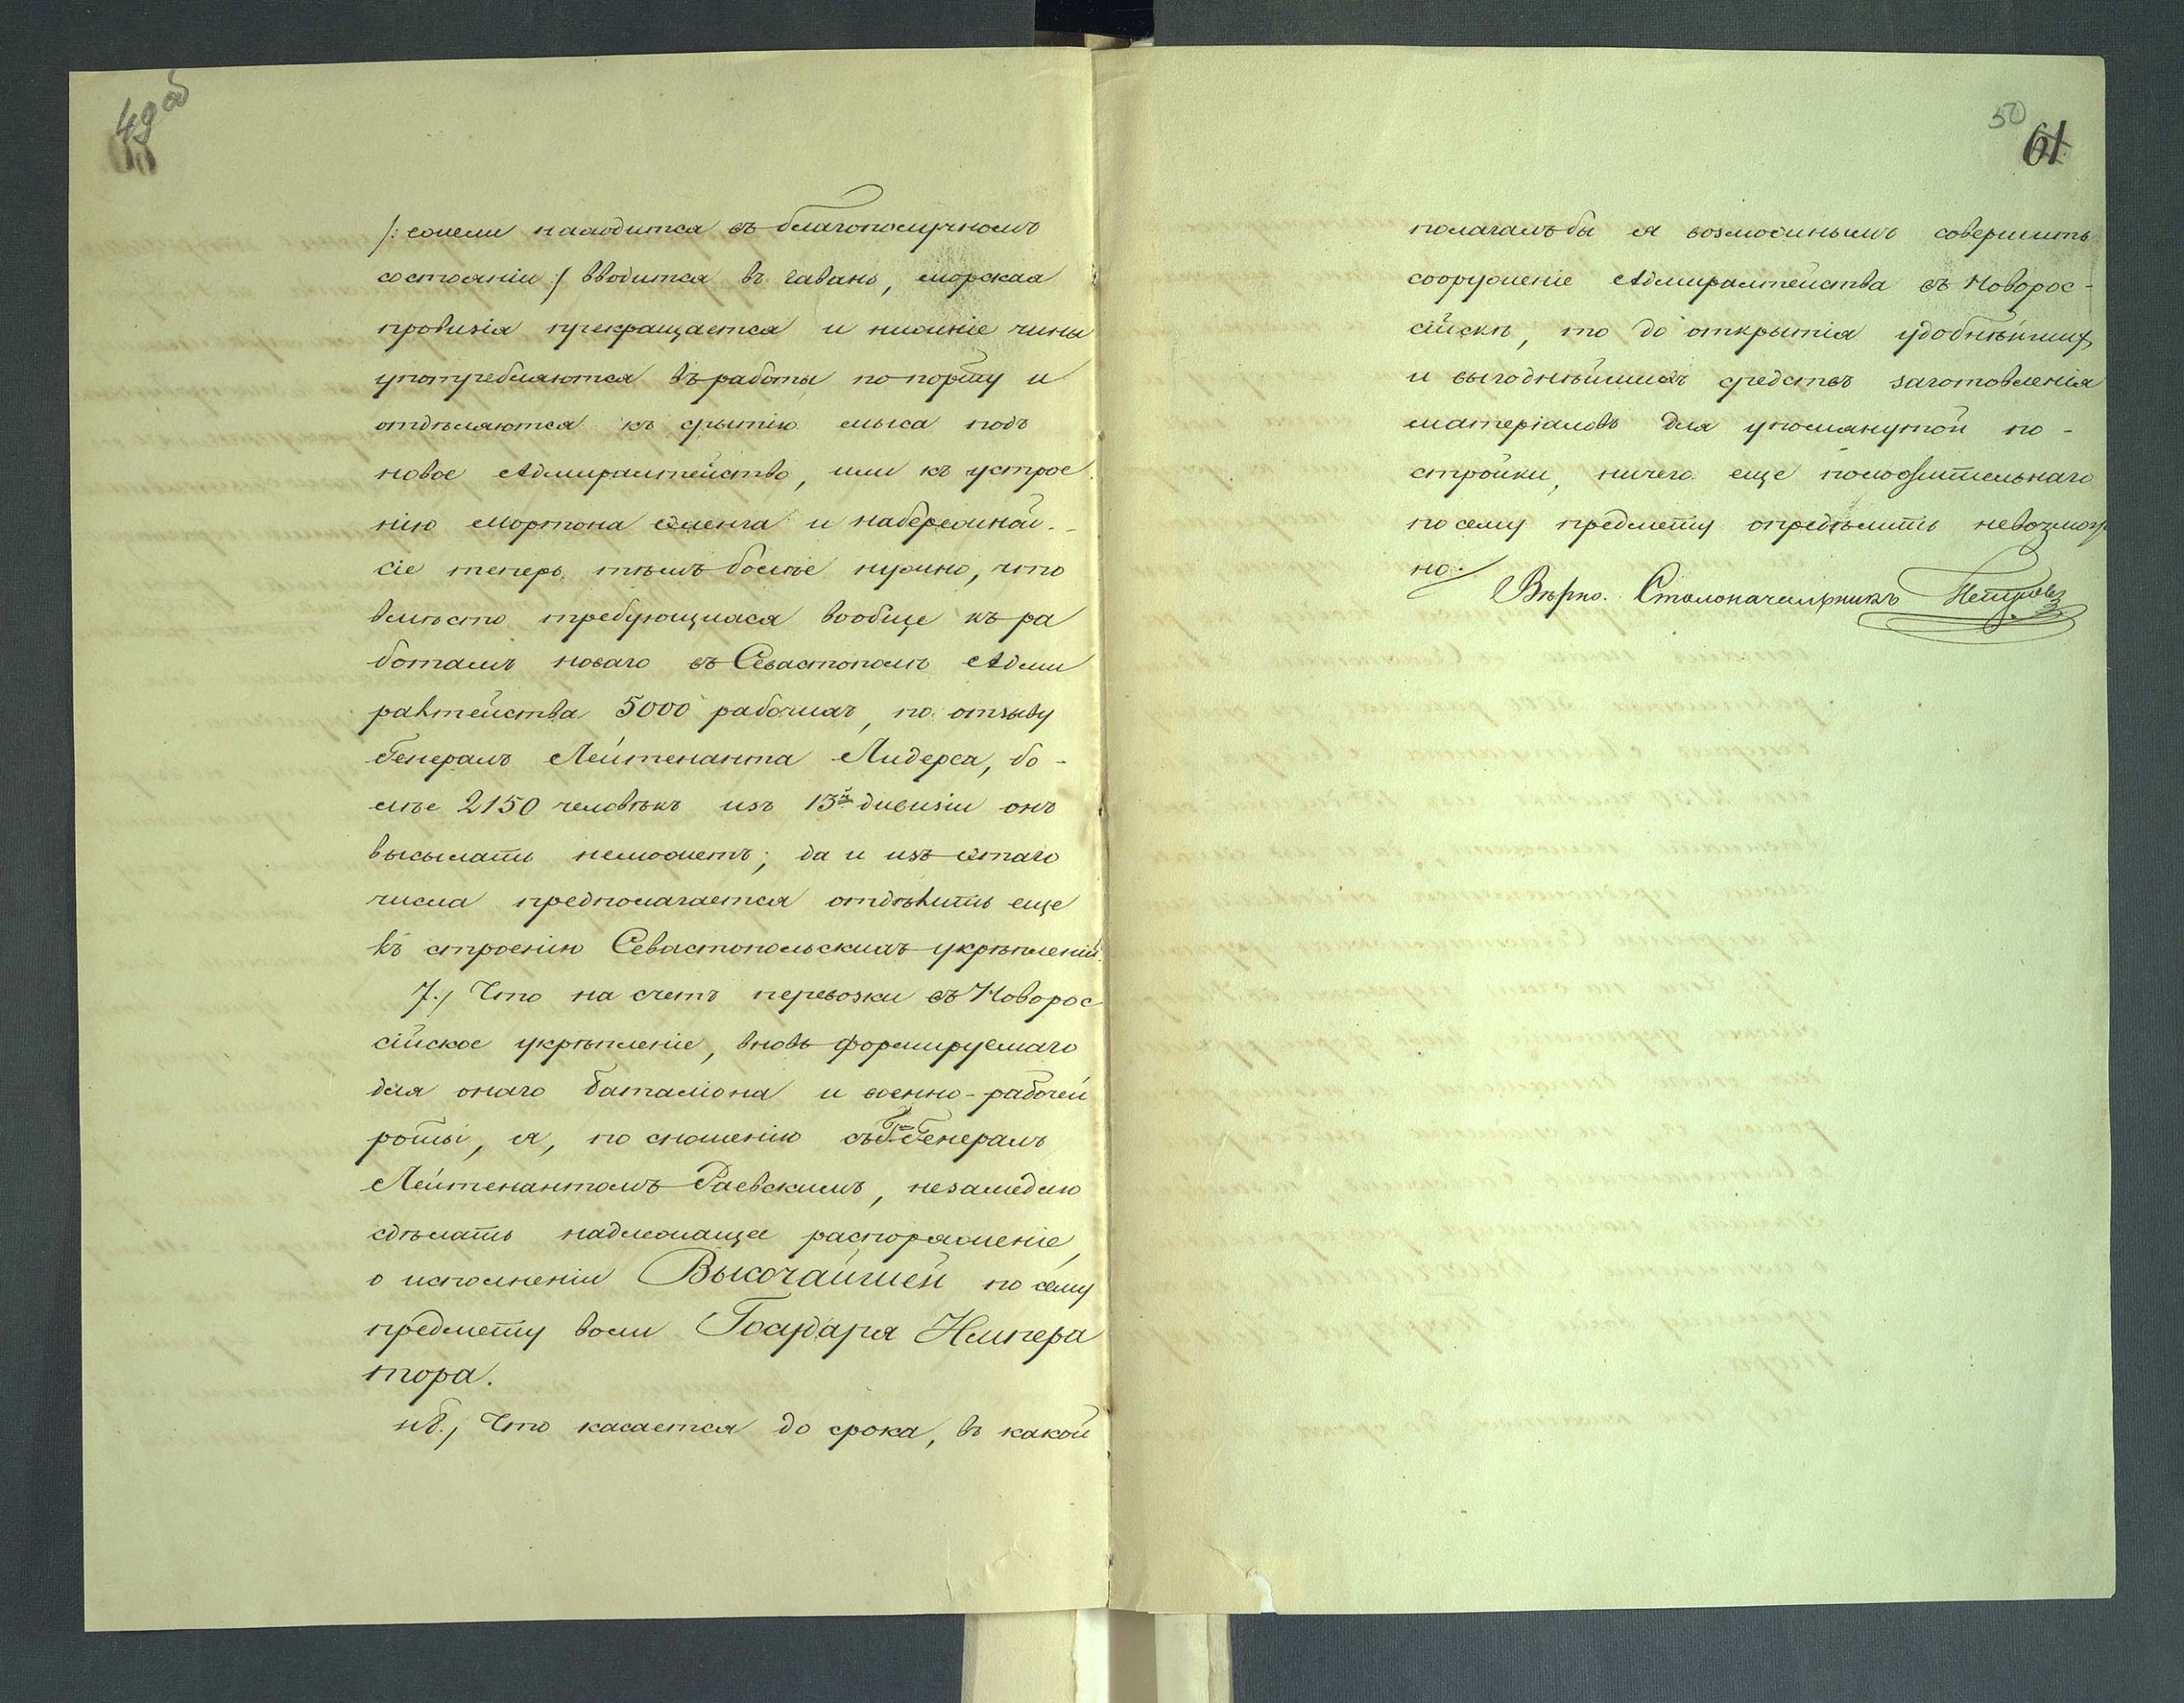 49 об
/: если находится въ благополучномъ
состояніи :/ вводится въ гавань, морская
провизія прекращается и нижніе чины
употребляются въ работы по порту и
отдѣляются къ срытію мыса подъ
новое Адмиралтейство, или къ устрое
нію Мортона эленга и набережной. -
сіе теперь тѣмъ болѣе нужно, что
вмѣсто требующихся вообще къ ра
ботамъ новаго въ Севастополѣ Адми
ралтейства 5000 рабочихъ, по отзыву
Генералъ Лейтенанта Лидерса, бо-
лѣе 2150 человѣкъ изъ 13й дивизіи онъ
высылать неможетъ; да и изъ этаго
числа предполагается отдѣлить еще
къ строенію Севастопольскихъ укрѣпленій.
7./ Что на счетъ перевозки въ Новорос
сійское укрѣпленіе, вновь формируемаго
для онаго баталіона и военно-рабочей
роты, я, по сношенію съ Гнъ Генералъ
Лейтенантомъ Раевскимъ, незамедлю
сдѣлать надлежащее распоряженіе,
о исполненіи Высочайшей по сему
предмету воли Государя Импера
тора.
и 8./ Что касается до срока, въ какой
50
61
полагалъ бы я возможнымъ совершить
сооруженіе Адмиралтейства въ Новорос-
сійскѣ, то до открытія удобнѣйших
и выгоднѣйшихъ средствъ заготовленія
матеріаловъ для упомянутой по-
стройки, ничего еще положительнаго
по сему предмету опредѣлить невозмож
но.
Вѣрно. Столоначальникъ Петровъ